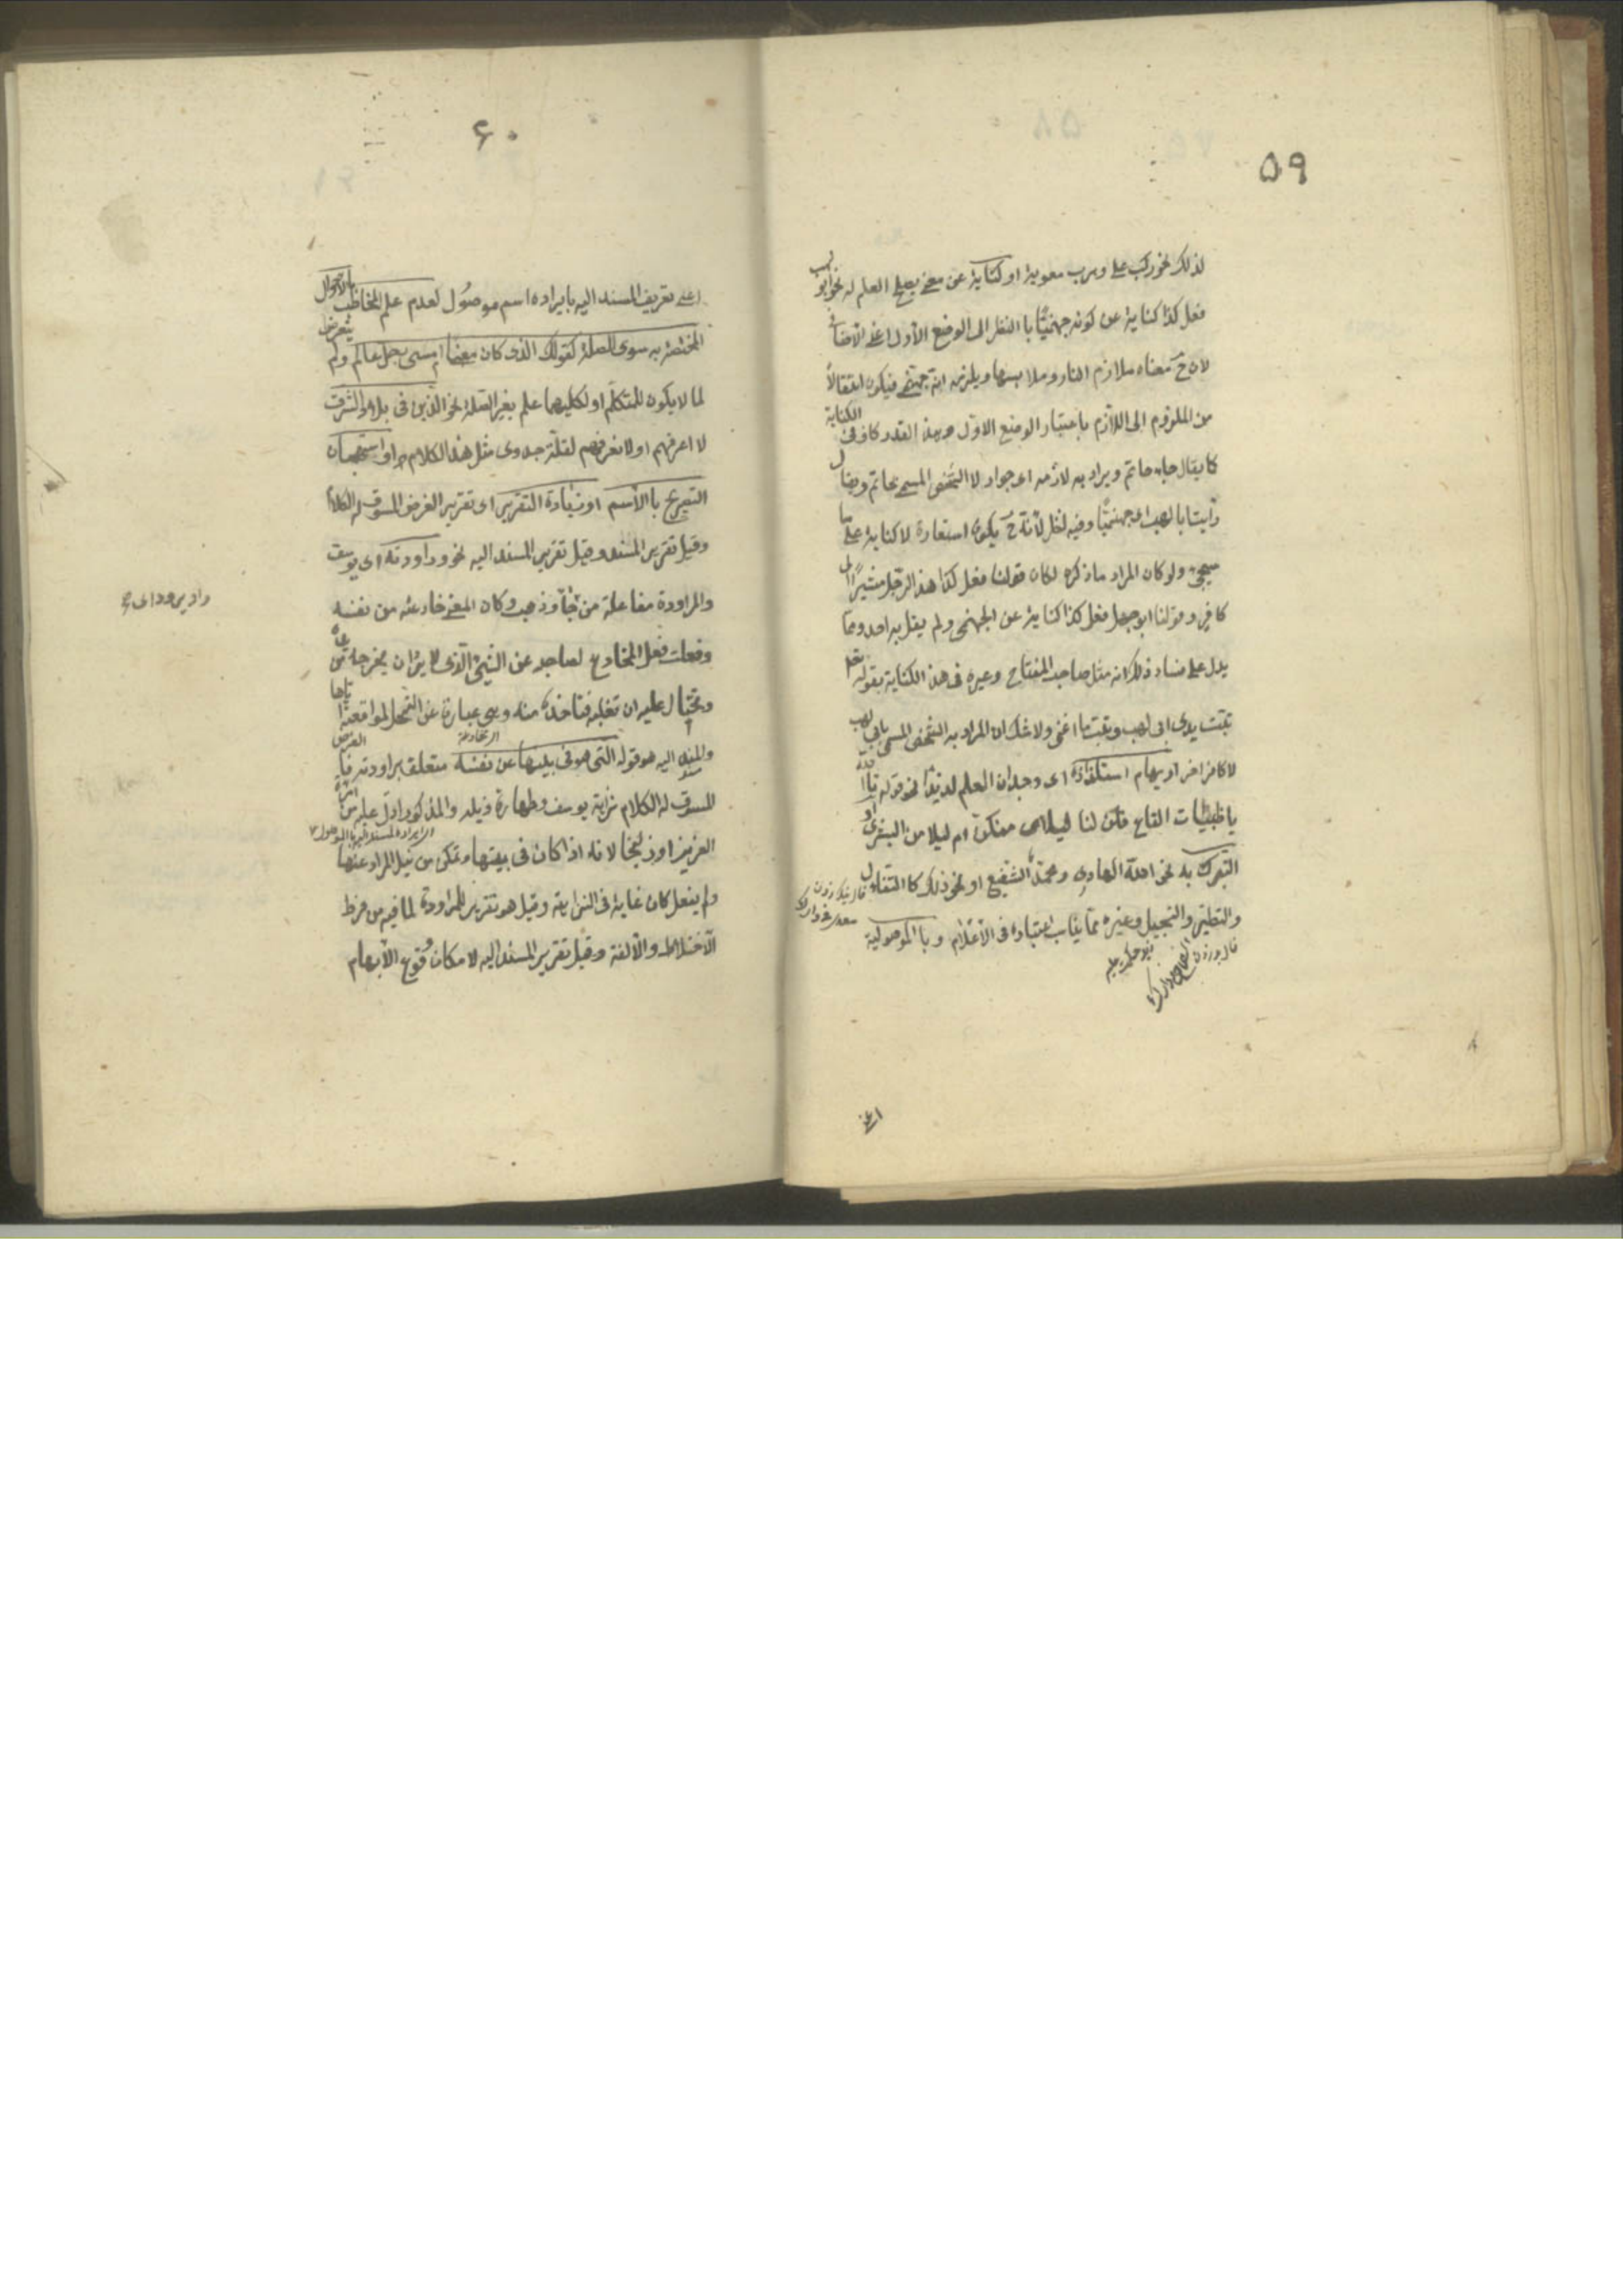 ٥٩
لذلك نحو ركب على وهرب معوية او كناية عن معنى يصلح العلم له نحو ابو لهب
فعل كذا كناية عن كونه جهنميًّا با النظر الى الوضع الأول اعنى الأضافى
لان ح معناه ملازم النار وملابسها ويلزمه انه جهنمى فيكون انتقالاً
من الملزوم الى اللازم باعتبار الوضع الاوّل وهذا القدر كاف فى الكناية
كما يقال جاء حاتم ويراد به لازمه اى جواد لا الشخص المسمى بحاتم ويقال
رأيت ابا لهب اى جهنميًّا وفيه نظر لأنه ح يكون استعارة لا كناية على ما
سيجئ ولو كان المراد ما ذكره لكان قولنا فعل كذا هذا الرّجل مشيرًا الى
كافر وقولنا ابو جهل فعل كذا كناية عن الجهنمى ولم يقل به احد وممّا
يدل على فساد ذلك انه مثل صاحب المفتاح وغيره فى هذه الكناية بقوله تعم
تبّت يدى ابى لهب وتبّت ما اغنى ولا شك ان المراد به الشخص المسمى بابى لهب
لا كافر اخر او بهام استلذاذه اى وجدان العلم لذيذًا نحو قوله تاا لله
يا ظبيات القاع قلن لنا ليلاى منكنّ ام ليلا من البشرى او
التبرك به نحو الله الهادى ومحمّد الشفيع او نحو ذلك كا التفاءل
والتطيّر والتسجيل وغيره ممّا يناسب اعتباره فى الأعلام وبا الموصولية
اعنى
٦٠
اعنى تعريف المسند اليه بايراده اسم موصول لعدم علم المخاطب بالاحوال
المختصّة به سوى الصلة كقولك الذى كان معنا امس رجل عالم ولم يتعرض
لما لا يكون للمتكلّم او لكليهما علم بغير الصّلة نحو الّذين فى بلاد الشرق
لا اعرفهم او لا نعرفهم لقلّة جدوى مثل هذا الكلام او استهجان
التصريح با الأسم او زيادة التقرير اى تقرير الغرض المسوق له الكلام
وقيل تقرير المسند وقيل تقرير المسند اليه نحو وراودته اى يوسف
والمراودة مفاعلة من جآء وذهب وكان المعنى خادعته من نفسه
وفعلت فعل المخادع لصاحبه عن الشئ الّذى لا يريد ان يخرجه من يده
وتحتال عليه ان تغلبه فتاخذه منه وهى عبارة عن التمحل لمواقعته اياها
والمسند اليه هو قوله التى هو فى بيتها عن نفسه متعلق براودته فا الغرض
المسوق له الكلام نزاهة يوسف وطهارة ذيله والمذكور ادلّ عليه من امراة
العزيز او زليخا لانه اذا كان فى بيتها وتمكن من نيل المراد عنها
ولم يفعل كان غاية فى النزاهة وقيل هو تقرير للمراودة لما فيه من فرط
الأختلاط والألفة وقيل تقرير المسند اليه لا مكان وقوع الأبهام